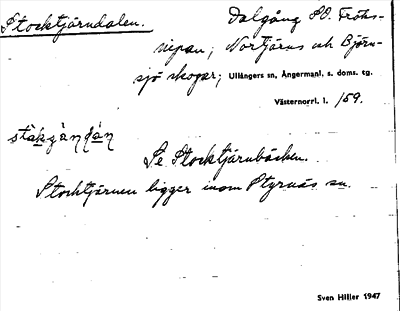 Stocktjärndalen.
Dalgång SO. Fröks-
nipan; Norrtjärns och Björn-
sjö skogar; Ullångers sn, Ångermanl. s. doms. tg.
Västernorrl. l. 159.
Se Stocktjärnbäcken.
Stocktjärnen ligger inom Styrnäs sn.
Sven Hiller 1947